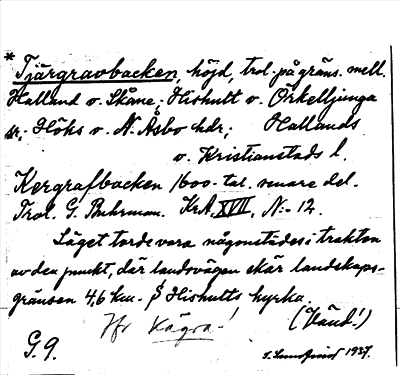 * Tjärgravbacken, höjd, trol. på gräns. mell.
Halland o. Skåne; Hishult o. Örkelljunga
sr; Höks o. N. Åsbo hdr; Hallands
o. Kristianstads l.
Kergrafbacken 1600-tal. senare del.
Trol. G. Buhrman. KrA XVII, N:- 12.
Läget torde vara någonstädes i trakten
av den punkt, där landsvägen skär landskaps-
gränsen 4,6 km. S Hishults kyrka.
Jfr Kägra-! (Vänd!)
G. 9. 1937.